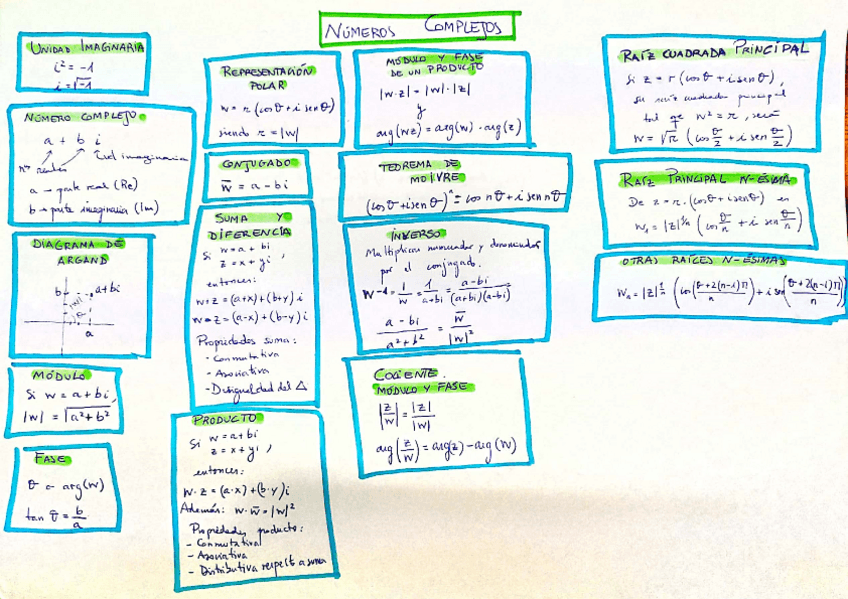 NÚMEROS COMPLEJOS
UNIDAD IMAGINARIA
i² = -1
i = √-1
NÚMERO COMPLEJO
a + b i
nos reales
Ud imaginaria
a → parte real (Re)
b → parte imaginaria (Im)
DIAGRAMA DE
ARGAND
b
a+bi
|w|
θ
a
MÓDULO
Si w = a + bi,
|w| = √a²+b²
FASE
θ = arg(w)
tan θ = b/a
REPRESENTACIÓN
POLAR
w = r (cos θ + i sen θ)
siendo r = |w|
CONJUGADO
w̅ = a - bi
SUMA Y
DIFERENCIA
Si w = a + bi
z = x + yi ,
entonces:
w+z = (a+x)+(b+y)i
w-z = (a-x)+(b-y)i
Propiedades suma:
- Conmutativa
- Asociativa
- Desigualdad del Δ
PRODUCTO
Si w = a+bi
z = x+yi ,
entonces:
w·z = (a·x)+(b·y)i
Además: w·w̅ = |w|²
Propiedades producto:
- Conmutativa
- Asociativa
- Distributiva respecto a suma
MÓDULO Y FASE
DE UN PRODUCTO
|w·z| = |w|·|z|
y
arg(wz) = arg(w)·arg(z)
TEOREMA DE
MOIVRE
(cos θ + i sen θ)ⁿ = cos n θ + i sen n θ
INVERSO
Multiplicar numerador y denominador
por el conjugado.
w⁻¹ = 1/w = 1/(a+bi) = (a-bi)/((a+bi)(a-bi))
(a-bi)/(a²+b²) = w̅/|w|²
COCIENTE.
MÓDULO Y FASE
|z/w| = |z|/|w|
arg(z/w) = arg(z) - arg(w)
RAÍZ CUADRADA PRINCIPAL
Si z = r (cos θ + i sen θ),
su raíz cuadrada principal
tal que w² = z, será
w = √r (cos θ/2 + i sen θ/2)
RAÍZ PRINCIPAL N-ÉSIMA
De z = r·(cos θ + i sen θ) es
w₁ = |z|^1/n (cos θ/n + i sen θ/n)
OTRAS RAÍCES N-ÉSIMAS
wₙ = |z|^1/n (cos (θ+2(n-1)π)/n) + i sen ((θ+2(n-1)π)/n)